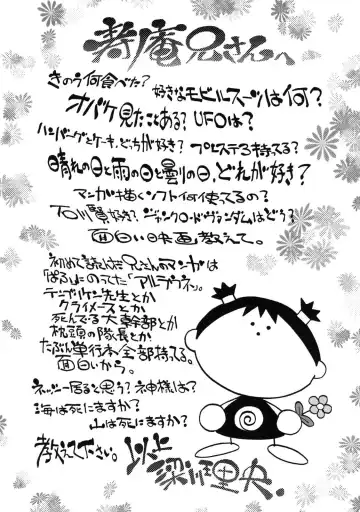 寿庵兄さんへ
きのう何食べた?
好きなモビルスーツは何?
オバケ見たことある? UFOは?
ハンバーグとケーキ、どっちが好き? プレステ3持ってる?
晴れの日と雨の日と曇りの日、どれが好き?
マンガ描くソフト何使ってるの?
石川賢好き? ジャン・クロード・ヴァンダムはどう?
面白い映画教えて。
初めて読んだ兄さんのマンガは
「ぱるぷ」にのってた「アルラウネ」。
テンプリケン先生とか
クライメースとか
死んでる大幹部とか
枕頭の隊長とか
たぶん単行本全部持ってる。
面白いから。
ネッシー居ると思う? 神様は?
海は死にますか?
山は死にますか?
教えて下さい。以上